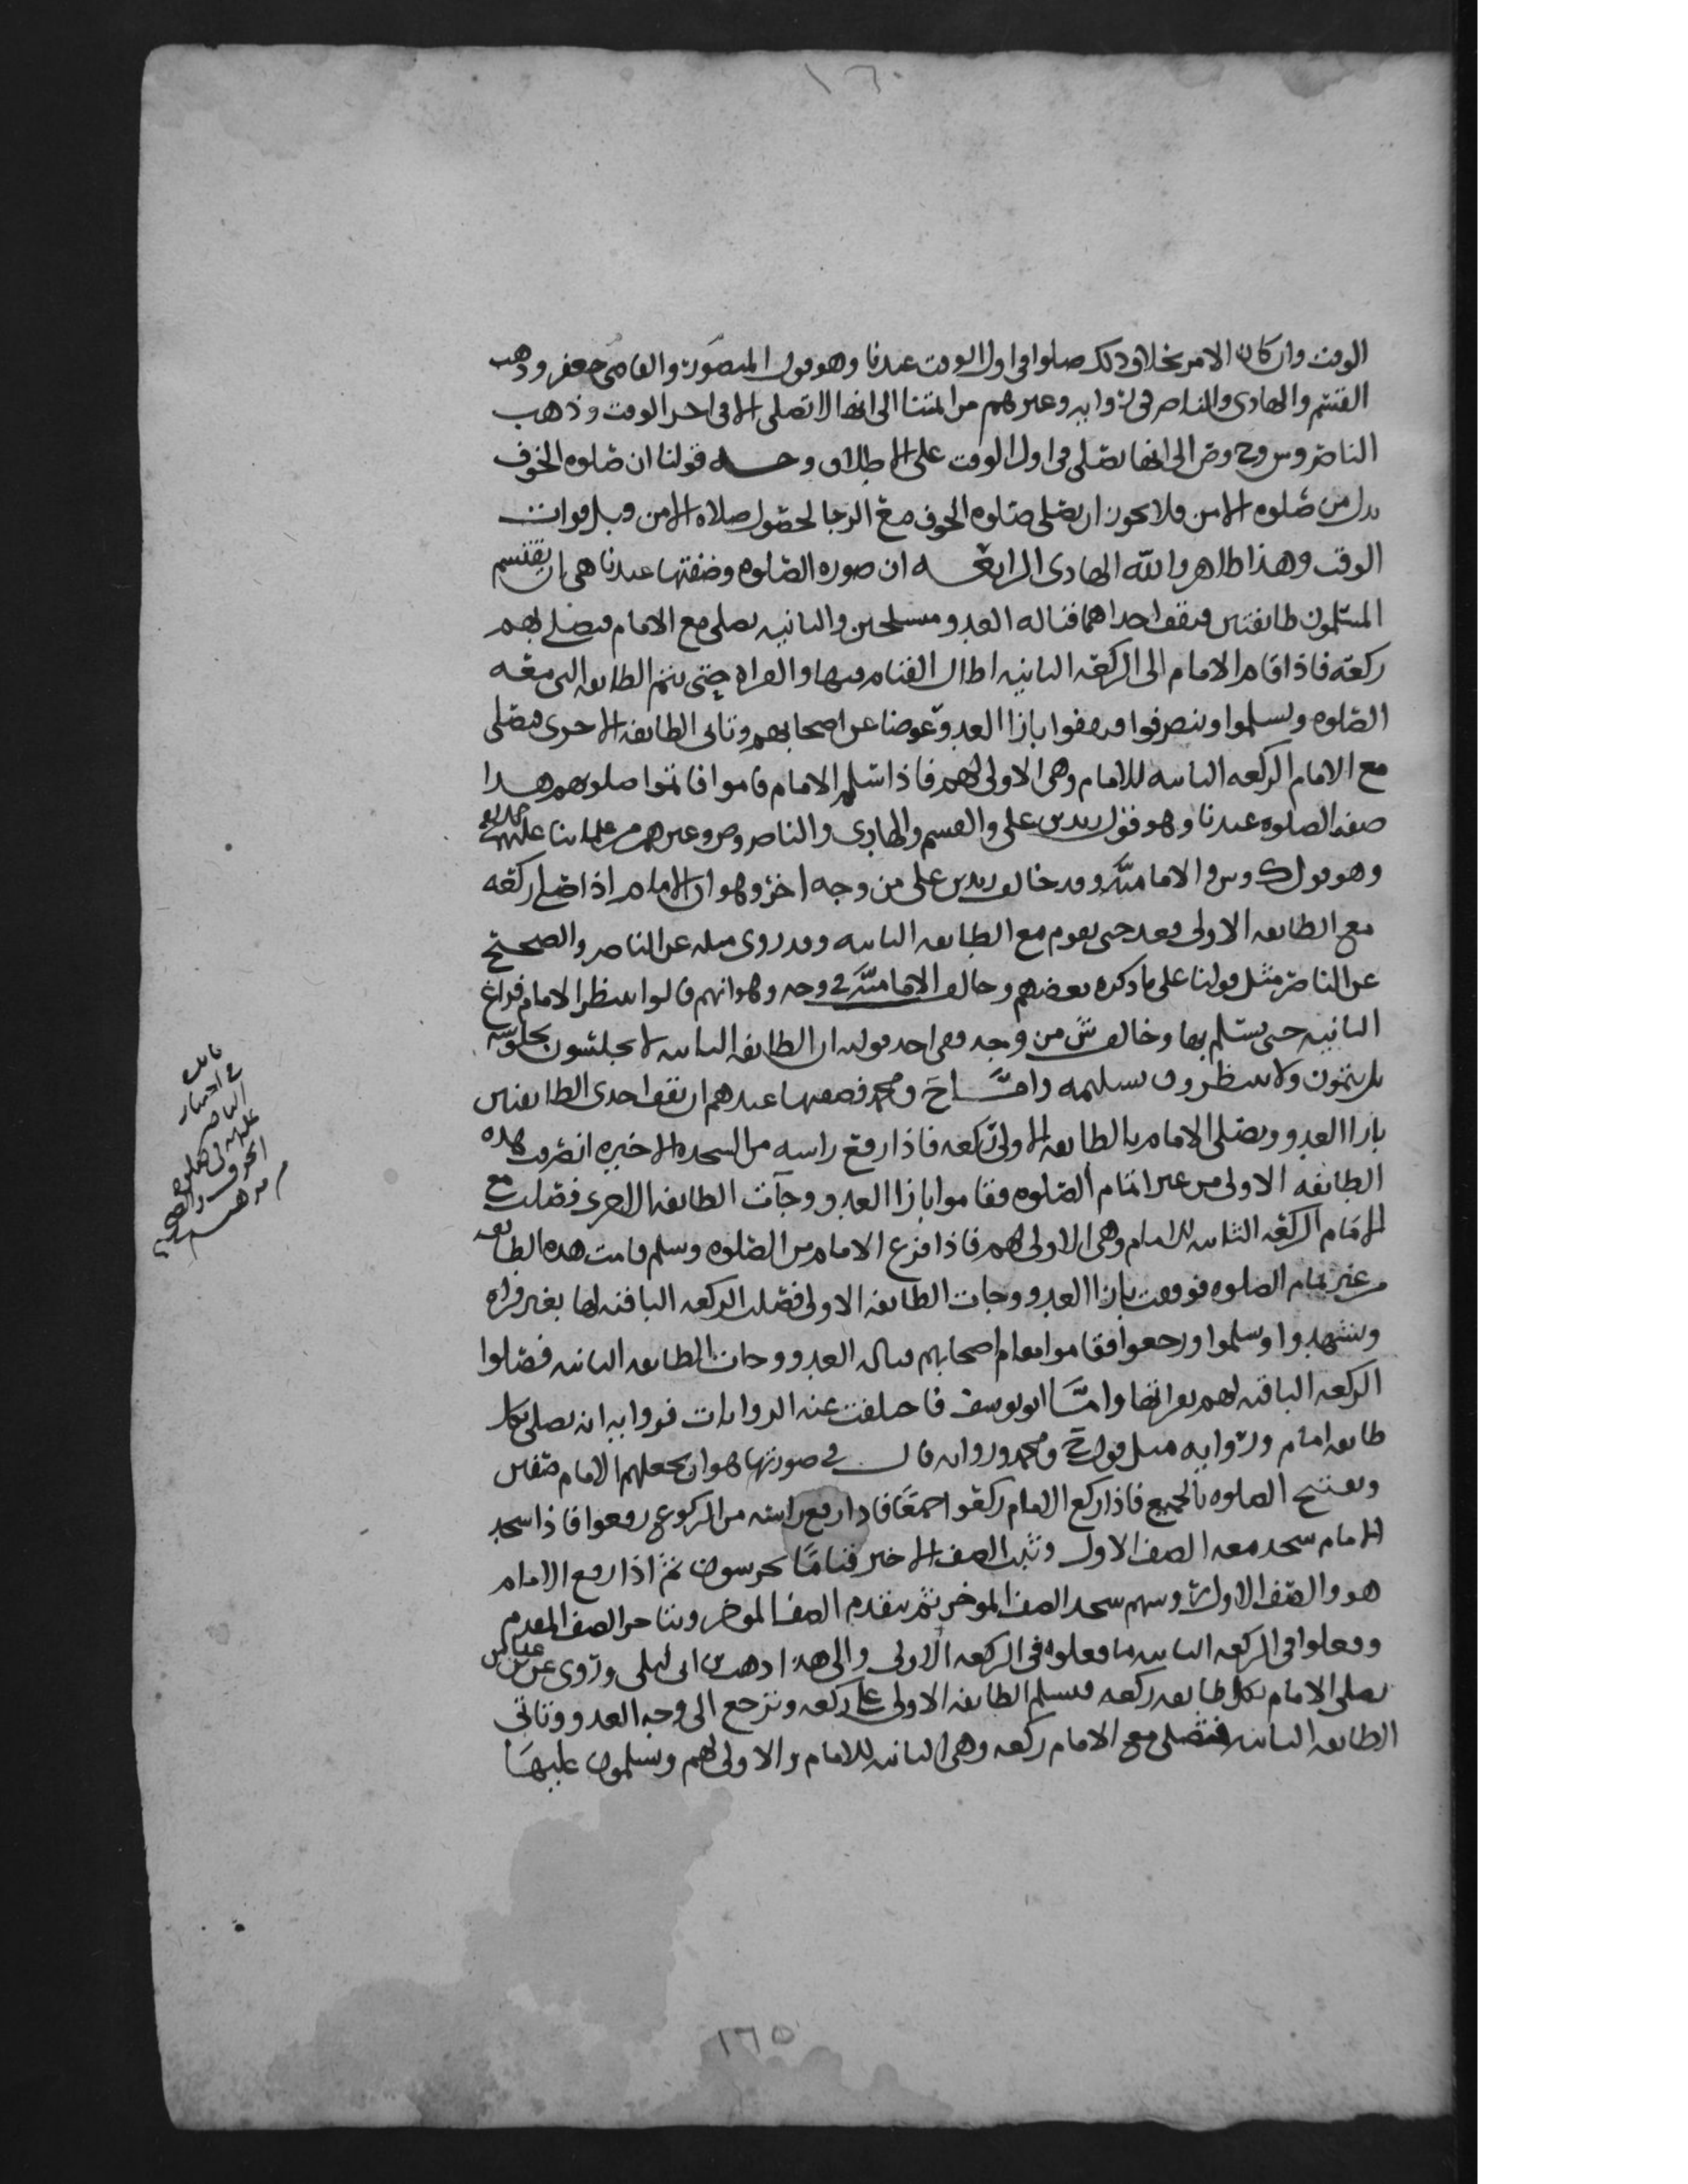 ١٦٠
الوقت وان كان الامر بخلاف ذلك صلوا في اول الوقت عندنا وهو قول المنصور والقاضي جعفر وذهب
القسم والهادي والناصر في رواية وغيرهم من ائمتنا الى انها لا تصلى الا في اخر الوقت وذهب
الناصر وش وح وص الى انها تصلى في اول الوقت على الاطلاق وجه قولنا ان صلوه الخوف
بدل من صلوه الامن فلا يجوز ان يصلي صلوه الخوف مع الرجا لحصول صلاه الامن قبل فوات
الوقت وهذا ظاهر والله الهادي الرابعه ان صوره الصلوه وصفتها عندنا هي ان يقتسم
المسلمون طايفتين فتقف احداهما قبالة العدو متسلحين والثانيه تصلي مع الامام فيصلي بهم
ركعه فاذا قام الامام الى الركعه الثانيه اطال القيام فيها والقراه حتى تتم الطايفه التي معه
الصلوه ويسلموا وينصرفوا فيقفوا بازا العدو عوضا عن اصحابهم وتاتي الطايفه الاخرى فيصلي
مع الامام الركعه الثانيه للامام وهي الاولى لهم فاذا سلم الامام قاموا فاتموا صلوتهم هذا
صفه الصلوه عندنا وهو قول زيد بن علي والقسم والهادي والناصر وص وغيرهم من علماينا عليهم
وهو قول ك وش والاماميه وقد خالف زيد بن علي من وجه اخر وهو ان الامام اذا صلى ركعه
مع الطايفه الاولى قعد حتى يقوم مع الطايفه الثانيه وقد روي مثله عن الناصر والصحيح
عن الناصر مثل قولنا على ما ذكره بعضهم وخالف الاماميه في وجه وهو انهم قالوا ينتظر الامام فراغ
الثانيه حتى يسلم بها وخالف ش من وجه وفي احد قوليه ان الطايفه الثانيه لا يجلسون بجلوسه
بل يتمون ولا ينتظرون تسليمه وامــا ح ومحمد فصفتها عندهم ان تقف احدى الطايفتين
بازا العدو ويصلي الامام بالطايفه الاولى ركعه فاذا رفع راسه من السجده الاخيره انصرفت هذه
الطايفه الاولى من غير اتمام الصلوه فقاموا بازا العدو وجآت الطايفه الاخرى فصلت مع
الامام الركعه الثانيه للامام وهي الاولى لهم فاذا فرغ الامام من الصلوه وسلم قامت هذه الطايفه
من غير تمام الصلوه فوقفت بازا العدو وجات الطايفه الاولى فصلت الركعه الباقيه لها بغير قراه
وتشهدوا وسلموا ورجعوا فقاموا مقام اصحابهم قبال العدو وجات الطايفه الثانيه فصلوا
الركعه الباقيه لهم بقراتها وامــا ابو يوسف فاختلفت عنه الروايات فرواية انه يصلي بكل
طايفه امام ورواية مثل قول ح ومحمد ورواية قال في صورتها هو ان يجعلهم الامام صفين
ويفتتح الصلوه بالجميع فاذا ركع الامام ركعوا جمعًا فاذا رفع راسه من الركوع رفعوا فاذا سجد
الامام سجد معه الصف الاول وثبت الصف الاخير قيامًا يحرسون ثم اذا رفع الامام
هو والصف الاول روسهم سجد الصف الموخر ثم يتقدم الصف الموخر ويتاخر الصف المقدم
وفعلوا في الركعه الثانيه ما فعلوه في الركعه الاولى والى هذا ذهب ابن ابي ليلى وروي عن ابن عباس
يصلي الامام بكل طايفه ركعه فتسلم الطايفه الاولى على ركعه وترجع الى وجه العدو وتاتي
الطايفه الثانيه فتصلي مع الامام ركعه وهي الثانيه للامام والاولى لهم ويسلمون عليها
في اختيار
الناصر
عليلم في صلوه
الخوف
١٦٥